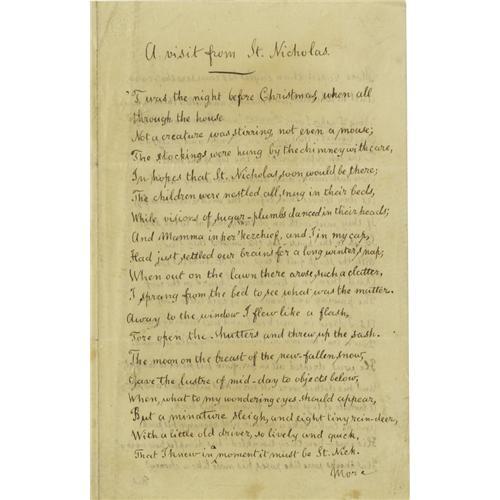 A visit from St. Nicholas.
'T was the night before Christmas, when all
through the house
Not a creature was stirring, not even a mouse;
The stockings were hung by the chimney with care,
In hopes that St. Nicholas, soon would be there;
The children were nestled all, snug in their beds,
While visions of sugar-plumbs danced in their heads;
And Mamma in her 'kerchief, and I in my cap,
Had just settled our brains for a long winter's nap;
When out on the lawn there arose such a clatter,
I sprang from the bed to see what was the matter.
Away to the window I flew like a flash,
Tore open the shutters and threw up the sash.
The moon on the breast of the new-fallen snow,
Gave the lustre of mid-day to objects below,
When, what to my wondering eyes should appear,
But a minature sleigh, and eight tiny rein-deer,
With a little old driver, so lively and quick,
That I knew in a moment it must be St. Nick.
More